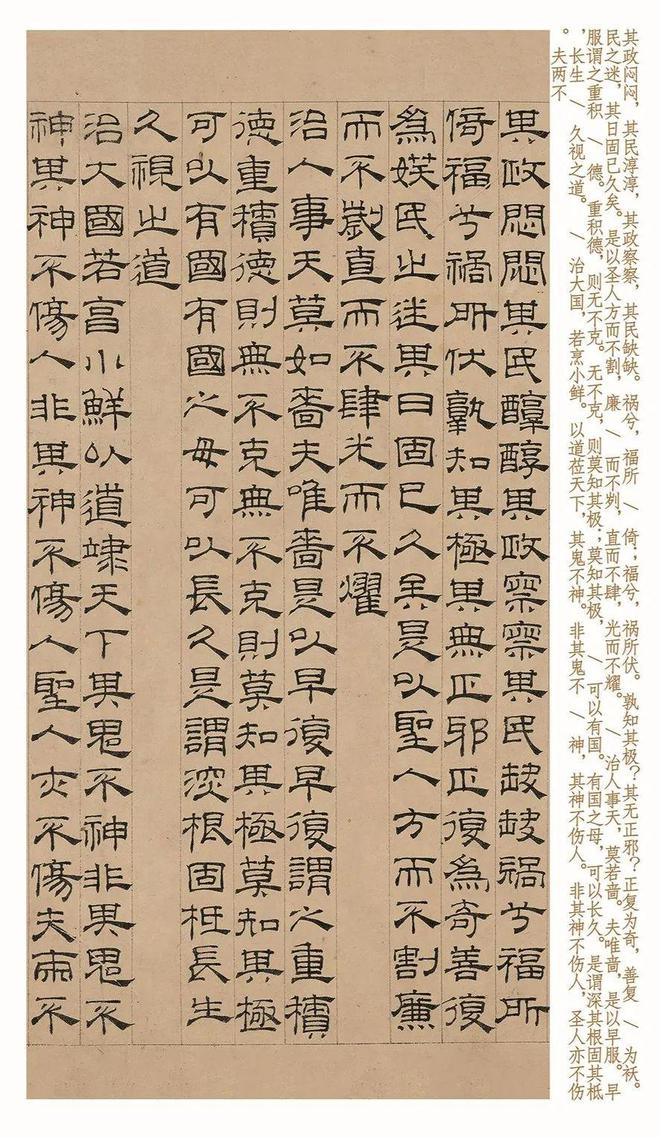 其政闷闷，其民淳淳，其政察察，其民缺缺。祸兮，福所 \ 倚；福兮，祸所伏。孰知其极？其无正邪？正复为奇，善复 \ 为祅。
民之迷，其日固已久矣。是以圣人方而不割，廉 \ 而不刿，直而不肆，光而不耀。 \ 治人事天，莫若啬。夫唯啬，是以早服。早
服谓之重积 \ 德。重积德，则无不克。无不克，则莫知其极；莫知其极， \ 可以有国。有国之母，可以长久。是谓深其根固其柢
，长生 \ 久视之道。 \ 治大国，若烹小鲜。以道莅天下，其鬼不神。 非其鬼不 \ 神，其神不伤人。 非其神不伤人，圣人亦不伤
。夫两不
其政悶悶其民醇醇其政察察其民缺缺禍兮福所
倚福兮禍所伏孰知其極其無正邪正復為奇善復
為民之迷其日固已久矣是以聖人方而不割廉
而不劌直而不肆光而不燿
治人事天莫如嗇夫唯嗇是以早復早復謂之重積
德重積德則無不克無不克則莫知其極莫知其極
可以有國有國之母可以長久是謂深根固柢長生
久視之道
治大國若亨小鮮以道天下其鬼不神非其鬼不
神其神不傷人非其神不傷人聖人亦不傷夫兩不